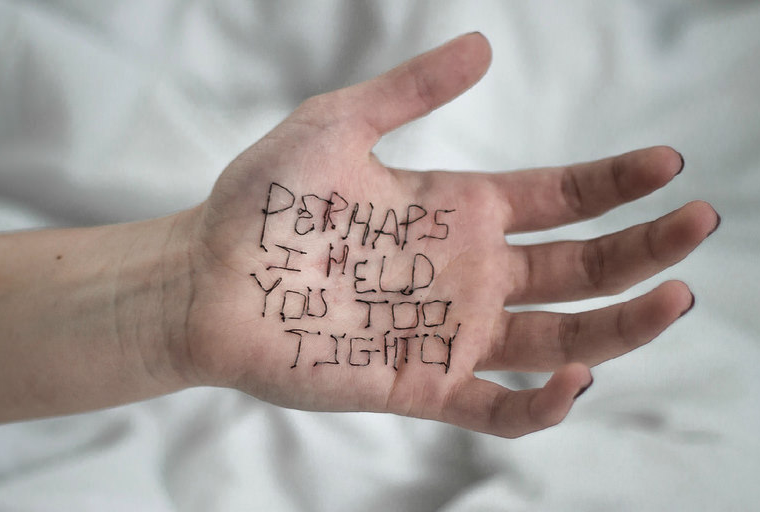 PERHAPS
I HELD
YOU TOO
TIGHTLY